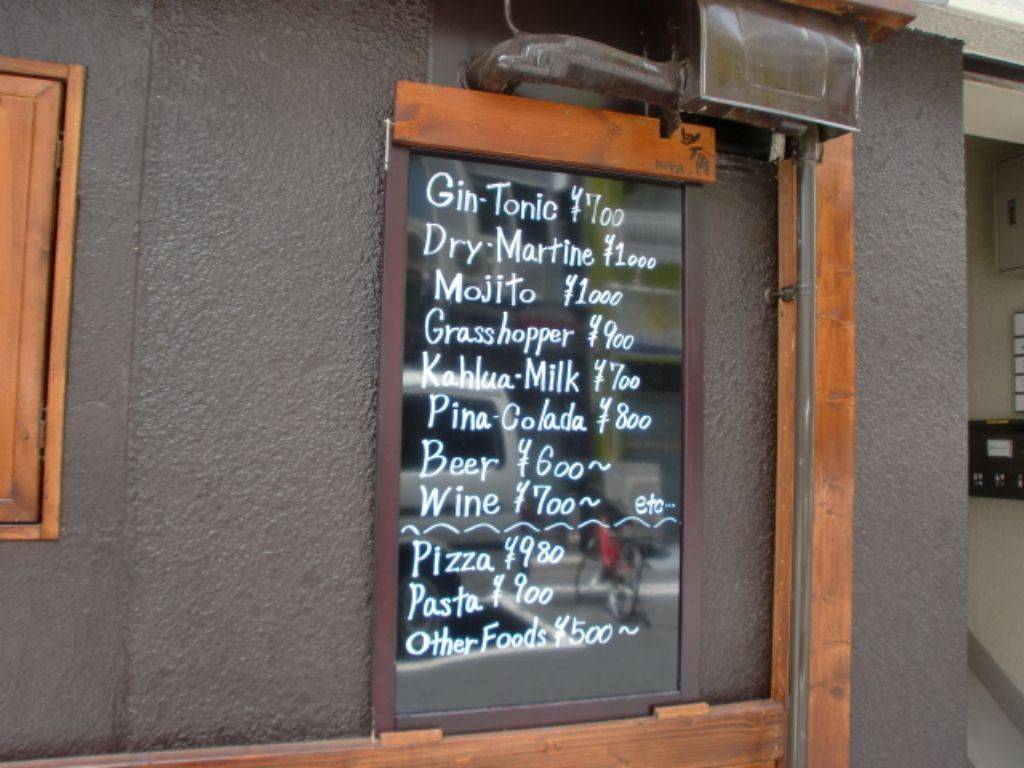 by
Gin-Tonic ¥700
Dry-Martine ¥1000
Mojito ¥1000
Grasshopper ¥900
Kahlua-Milk ¥700
Pina-Colada ¥800
Beer ¥600~
Wine ¥700~ etc...
Pizza ¥980
Pasta ¥900
Other Foods ¥500~